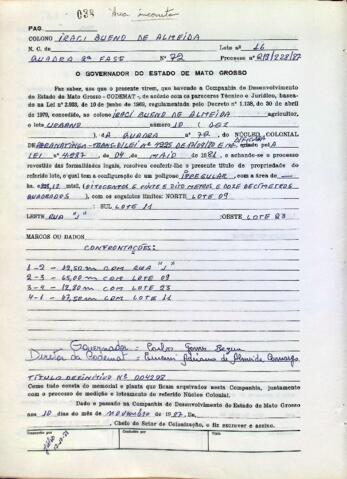 038
Área incorreta
PAG.
COLONO IRACI BUENO DE ALMEIDA
N. C. de Lote nº 16
QUADRA 2ª FASE Nº 72 Processo nº
O GOVERNADOR DO ESTADO DE MATO GROSSO
Faz saber, aos que o presente virem, que havendo a Companhia de Desenvolvimento
do Estado de Mato Grosso - CODEMAT -, de acôrdo com os pareceres Técnico e Jurídico, basea-
do na Lei nº 2.933, de 10 de junho de 1969, regulamentada pelo Decreto nº 1.138, de 30 de abril
de 1970, concedido, ao colono IRACI BUENO DE ALMEIDA agricultor,
o lote URBANO número 10 (DEZ
) (A QUADRA nº 72, do NÚCLEO COLONIAL
DE PARANATINGA criado pela
LEI nº 4987, de 04 de MAIO de 1981, e achando-se o processo
revestido das formalidades legais, resolveu conferir-lhe o presente título de propriedade do
referido lote, o qual tem a configuração de um polígono IRREGULAR, com a área de
(OITOCENTOS E VINTE E OITO METROS E DOZE DECÍMETROS
QUADRADOS), com os seguintes limites: NORTE LOTE 09
SUL LOTE 11
LESTE RUA "J" OESTE LOTE 23
MARCOS OU DADOS
CONFRONTAÇÕES:
1-2 - 12,50 m COM RUA "J"
2-3 - 65,00 m COM LOTE 09
3-4 - 12,80 m COM LOTE 23
4-1 - 67,50 m COM LOTE 11
Governador - Carlos Gomes Bezerra
Diretor da Codemat - de Almeida Camargo
TÍTULO DEFINITIVO Nº 004298
Como tudo consta do memorial e planta que ficam arquivados nesta Companhia, juntamente
com o processo de medição e loteamento do referido Núcleo Colonial.
Dado e passado na Companhia de Desenvolvimento do Estado de Mato Grosso
aos 10 dias do mês de NOVEMBRO de 1987, Eu,
, Chefe do Setor de Colonização, o fiz escrever e assino.